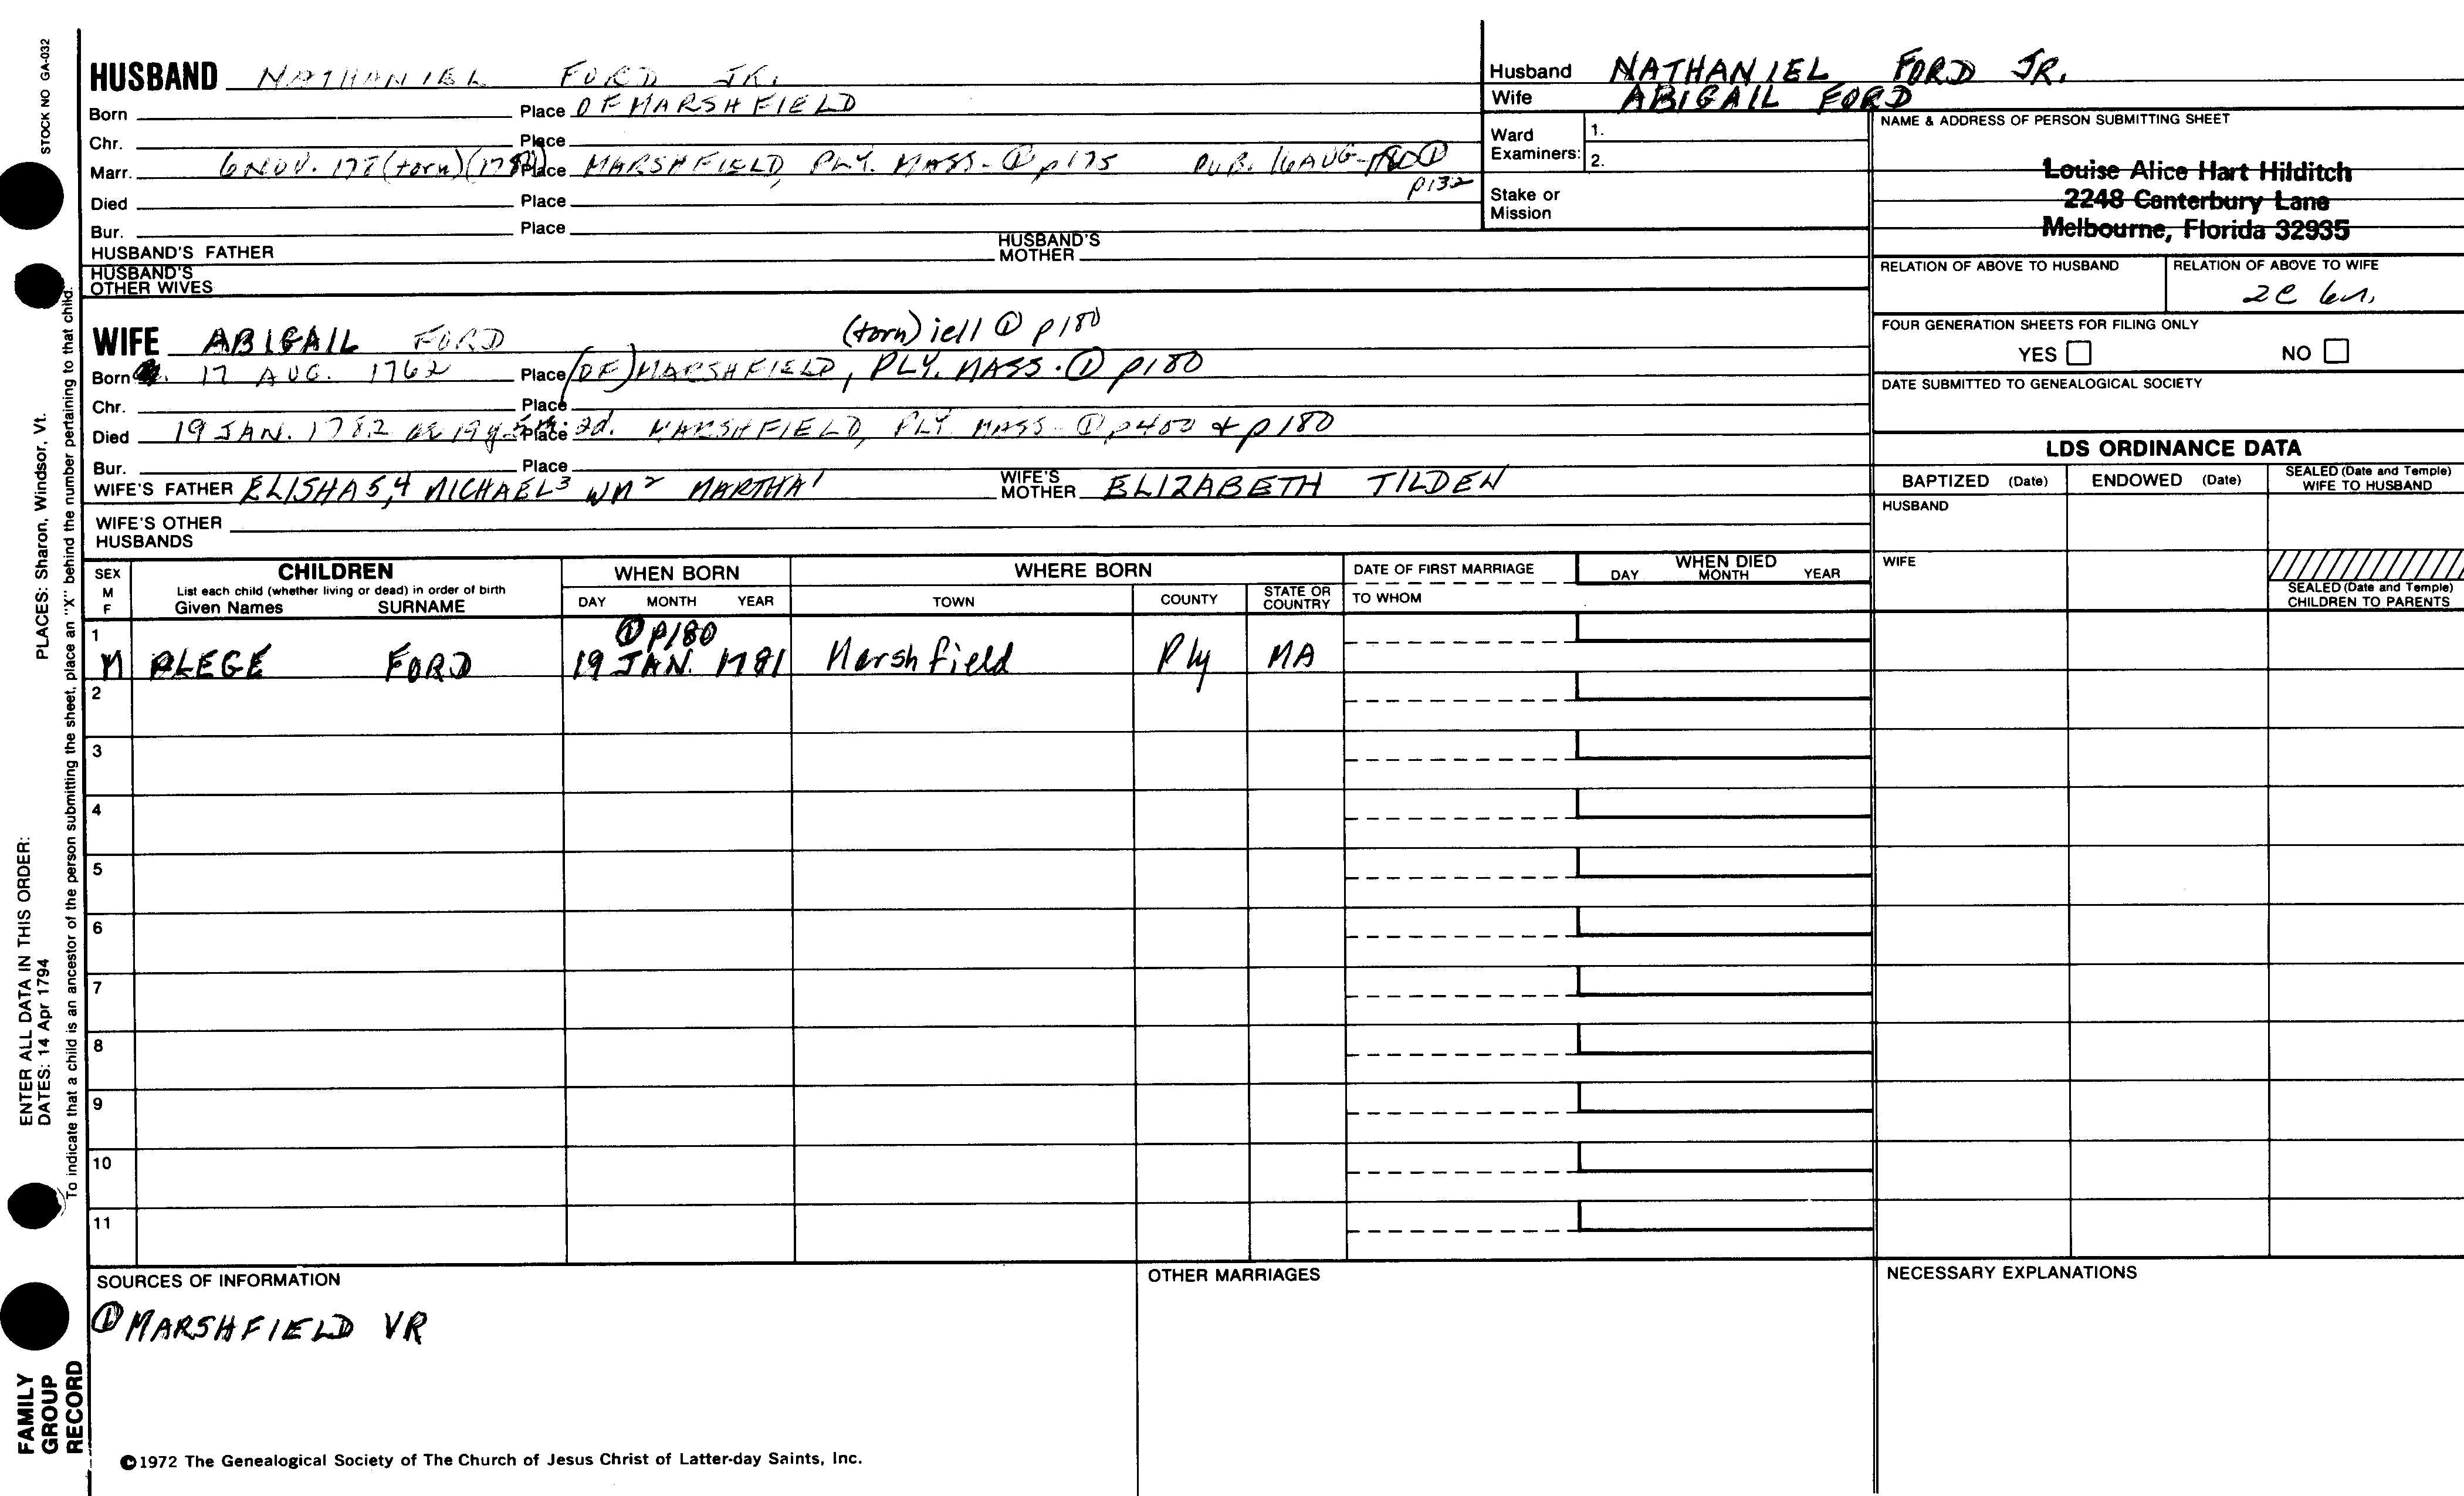 HUSBAND NATHANIEL FORD JR.
Born Place OF MARSHFIELD
Chr. Place
Marr. 6 NOV. 178(torn) Place MARSHFIELD, PLY. MASS- ① p175 PUB. 16 AUG- ①
p132
Died Place
Bur. Place
HUSBAND'S FATHER HUSBAND'S MOTHER
HUSBAND'S OTHER WIVES
Husband NATHANIEL FORD JR.
Wife ABIGAIL FORD
Ward Examiners: 1.
2.
Stake or Mission
NAME & ADDRESS OF PERSON SUBMITTING SHEET
Louise Alice Hart Hilditch
2248 Canterbury Lane
Melbourne, Florida 32935
RELATION OF ABOVE TO HUSBAND RELATION OF ABOVE TO WIFE
2C
FOUR GENERATION SHEETS FOR FILING ONLY
YES NO
DATE SUBMITTED TO GENEALOGICAL SOCIETY
WIFE ABIGAIL FORD (torn) iell ① p180
Born 17 AUG. 1762 Place (OF) MARSHFIELD, PLY. MASS. ① p180
Chr. Place
Died 19 JAN. 1782 ae 19y. 5m. 2d. Place MARSHFIELD, PLY MASS- ① p400 & p180
Bur. Place
WIFE'S FATHER ELISHA5,4 MICHAEL3 WM2 MARTHA1 WIFE'S MOTHER ELIZABETH TILDEN
WIFE'S OTHER HUSBANDS
LDS ORDINANCE DATA
BAPTIZED (Date) ENDOWED (Date) SEALED (Date and Temple) WIFE TO HUSBAND
HUSBAND
WIFE
SEALED (Date and Temple) CHILDREN TO PARENTS
SEX M F CHILDREN WHEN BORN WHERE BORN DATE OF FIRST MARRIAGE WHEN DIED
List each child (whether living or dead) in order of birth
Given Names SURNAME DAY MONTH YEAR TOWN COUNTY STATE OR COUNTRY TO WHOM DAY MONTH YEAR
1 ① P180
M PLEGE FORD 19 JAN. 1781 Marshfield Ply MA
2
3
4
5
6
7
8
9
10
11
SOURCES OF INFORMATION OTHER MARRIAGES NECESSARY EXPLANATIONS
① MARSHFIELD VR
©1972 The Genealogical Society of The Church of Jesus Christ of Latter-day Saints, Inc.
STOCK NO GA-032
PLACES: Sharon, Windsor, Vt.
ENTER ALL DATA IN THIS ORDER:
DATES: 14 Apr 1794
To indicate that a child is an ancestor of the person submitting the sheet, place an "X" behind the number pertaining to that child.
FAMILY
GROUP
RECORD